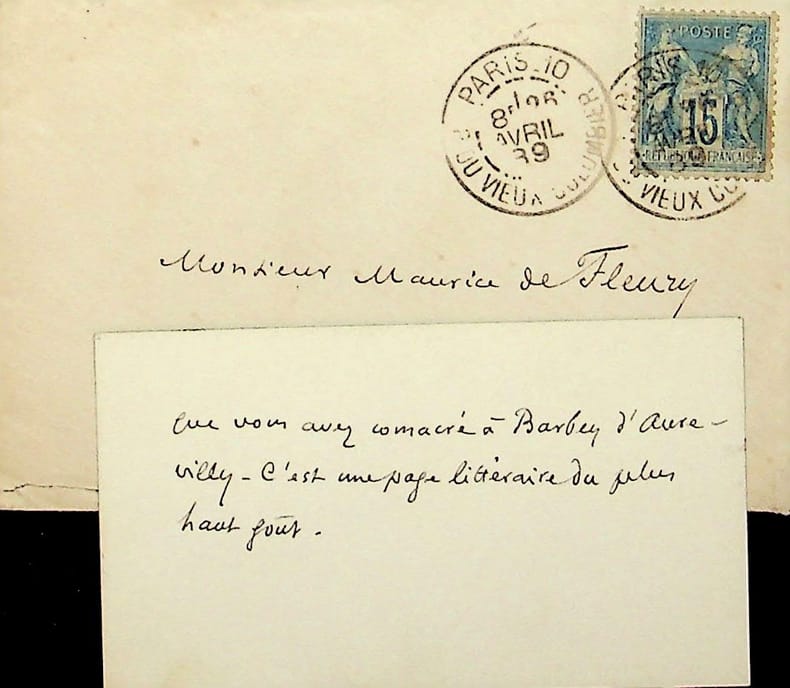 POSTE
15
REPUBLIQUE FRANÇAISE
PARIS_10
AVRIL
89
R. DU VIEUX COLOMBIER
PARIS 10
VIEUX CO
Monsieur Maurice de Fleury
que vous avez consacré à Barbey d'Aure-
villy - C'est une page littéraire du plus
haut goût.